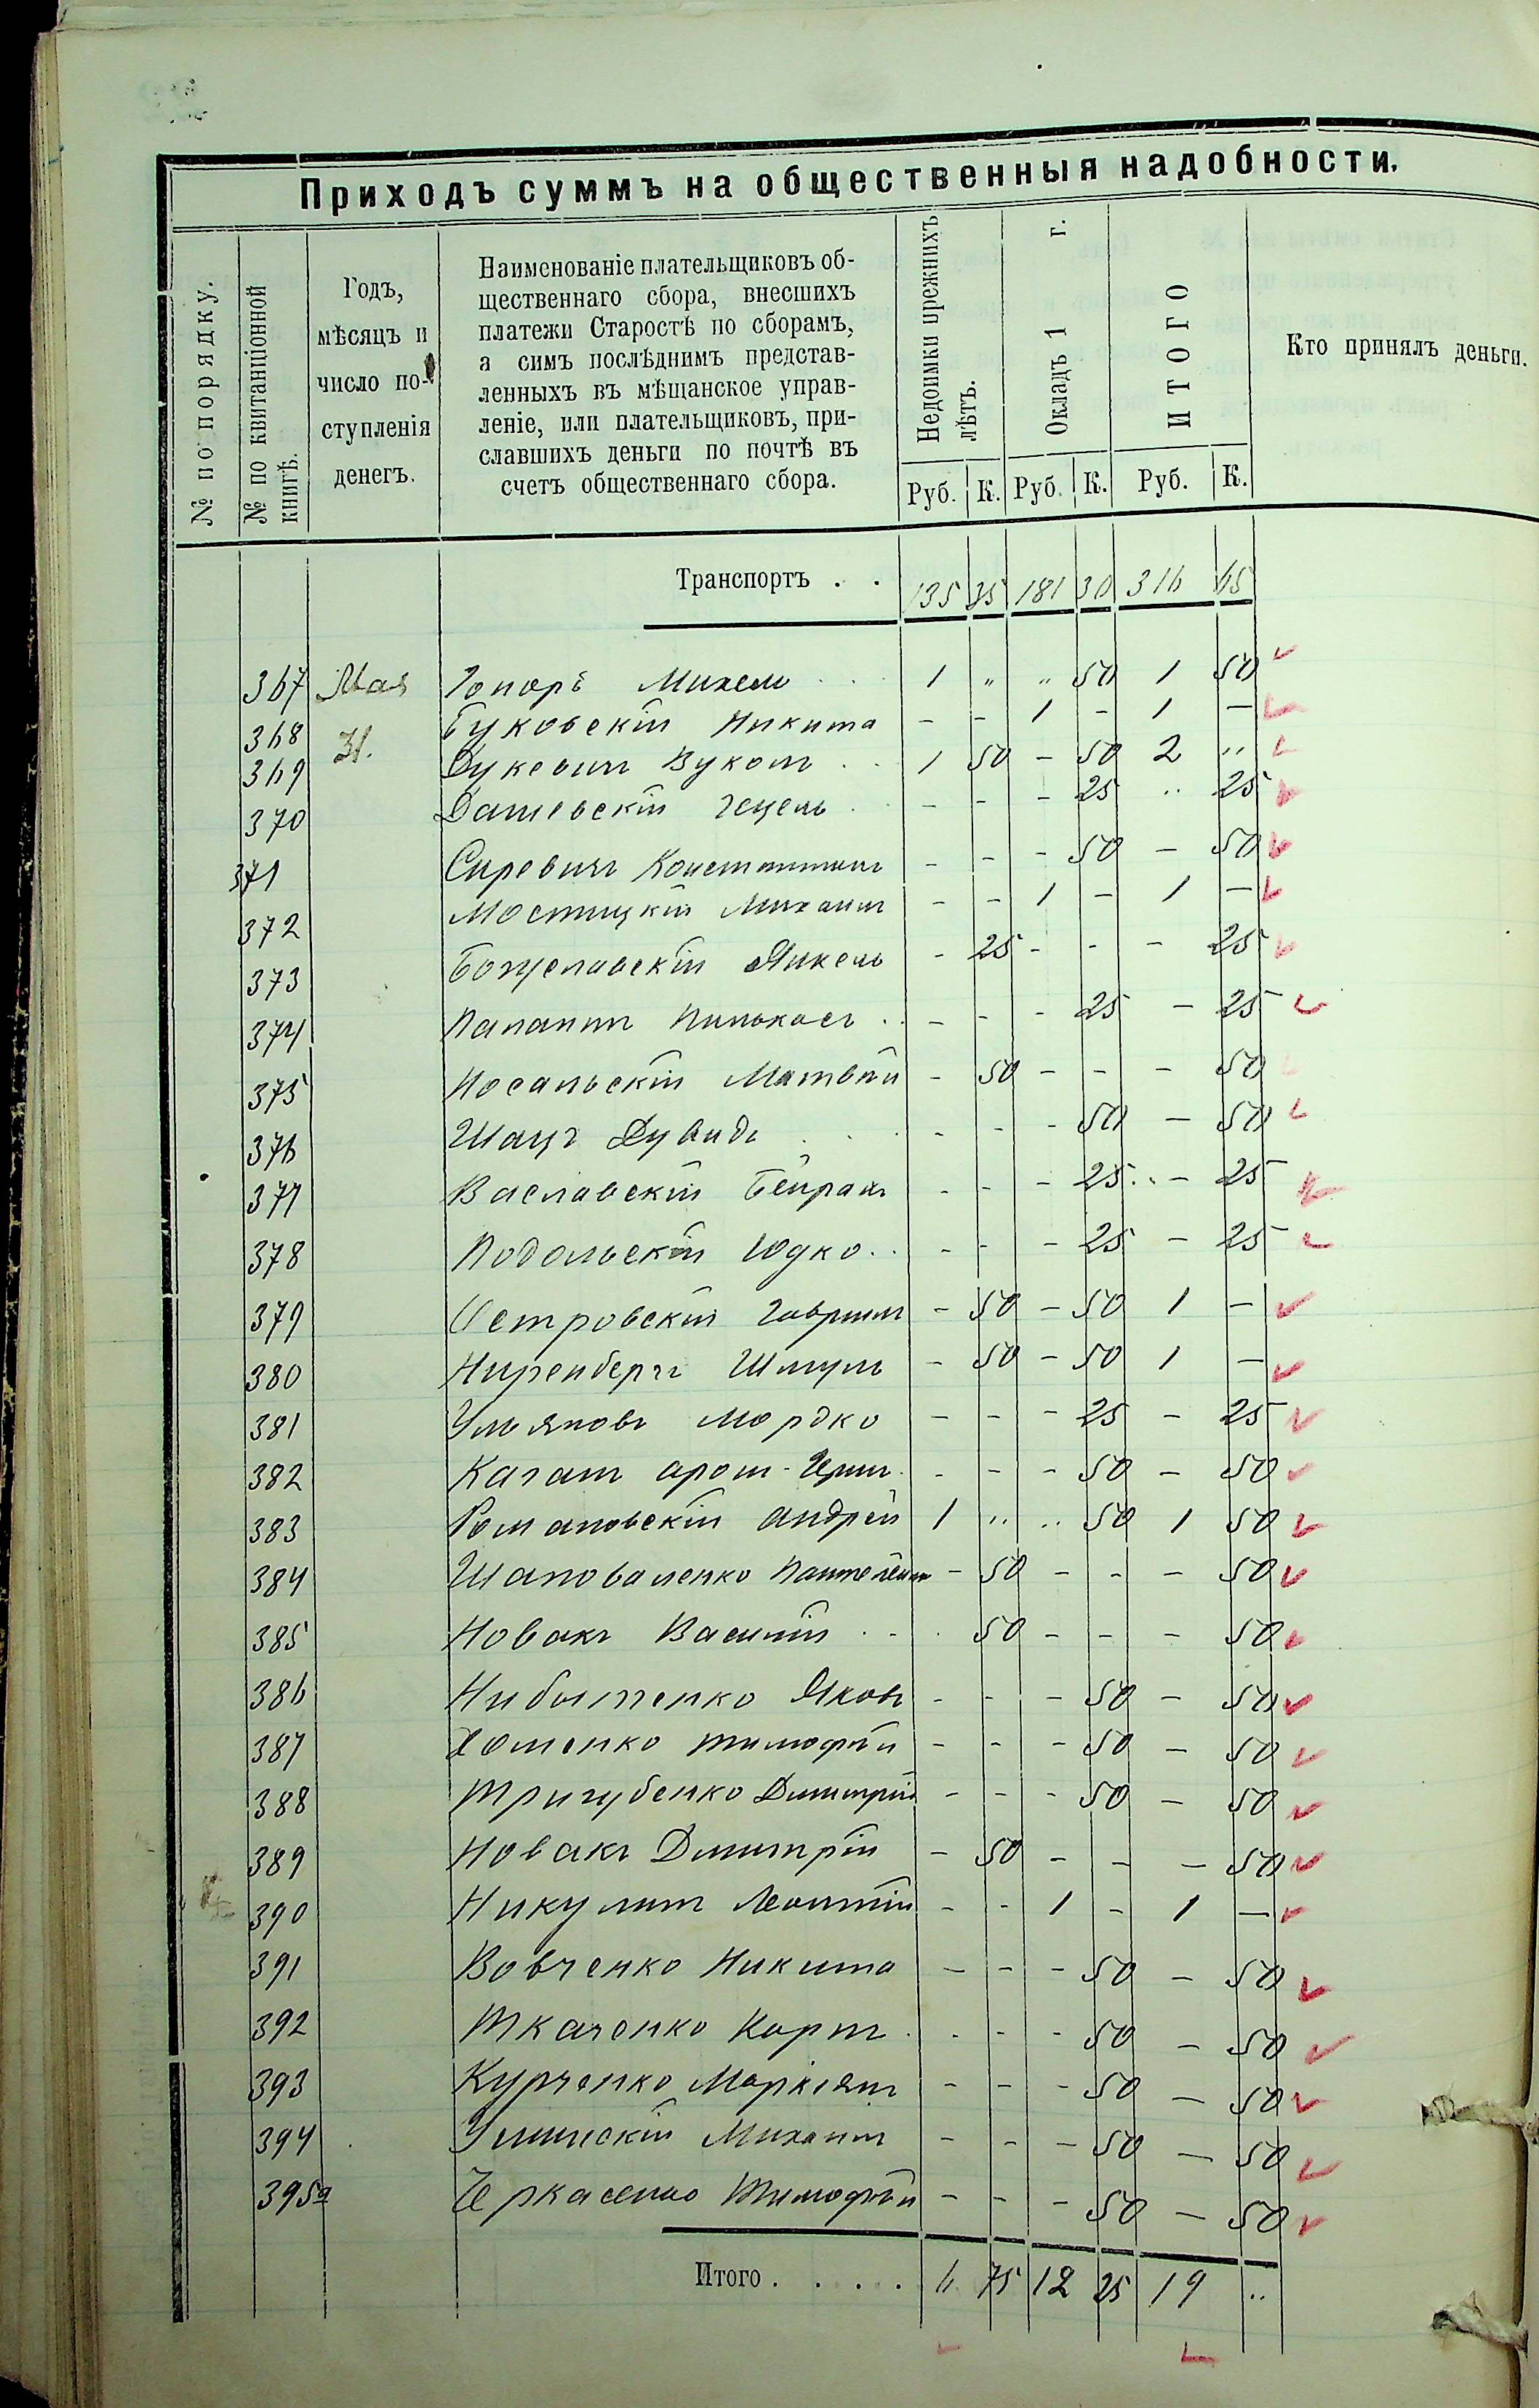 Приходъ суммъ на общественныя надобности.
№ по порядку.
№ по квитанціонной книгѣ.
Годъ,
мѣсяцъ и
число по-
ступленія
денегъ.
Наименованіе плательщиковъ об-
щественнаго сбора, внесшихъ
платежи Старостѣ по сборамъ,
а симъ послѣднимъ представ-
ленныхъ въ мѣщанское управ-
леніе, или плательщиковъ, при-
славшихъ деньги по почтѣ въ
счетъ общественнаго сбора.
Недоимки прежнихъ лѣтъ.
Окладъ 1 г.
ИТОГО
Кто принялъ деньги.
Руб. К. Руб. К. Руб. К.
Транспортъ . . 135 35 181 30 316 65
367 Мая Топоръ Михель 1 " " 50 1 50
368 31. Буковскій Никита - - 1 - 1 -
369 Вукол 1 50 - 50 2 "
370 Дашевскій Гецель - - - 25 " 25
371 Сиревичъ Константинъ - - - 50 - 50
372 Мостицкій Михаилъ - - 1 - 1 -
373 Янкель - 25 - - - 25
374 Пинькасъ - - - 25 - 25
375 Носальскій Матвѣй - 50 - - - 50
376 Шацъ Дувидъ - - - 50 - 50
377 Ваславскій - - - 25 - 25
378 Подольскій Юдко - - - 25 - 25
379 Островскій Гавріилъ - 50 - 50 1 -
380 Ниренбергъ Шмуль - 50 - 50 1 -
381 Ульяновъ Мордко - - - 25 - 25
382 Каганъ Аронъ-Гершъ - - - 50 - 50
383 Романовскій Андрей 1 " " 50 1 50
384 Шаповаленко Пантелеймонъ - 50 - - - 50
385 Новакъ Василій . 50 - - - 50
386 Яковъ - - - 50 - 50
387 Хоменко Тимофѣй - - - 50 - 50
388 Тригубенко Димитрій - - - 50 - 50
389 Новакъ Димитрій - 50 - - - 50
390 Никулинъ Леонтій - - 1 - 1 -
391 Вовченко Никита - - - 50 - 50
392 Ткаченко Карпъ - - - 50 - 50
393 Курченко Маркіянъ - - - 50 - 50
394 Михаилъ - - - 50 - 50
395 Тимофѣй - - - 50 - 50
Итого . . . . . 6 75 12 25 19 "